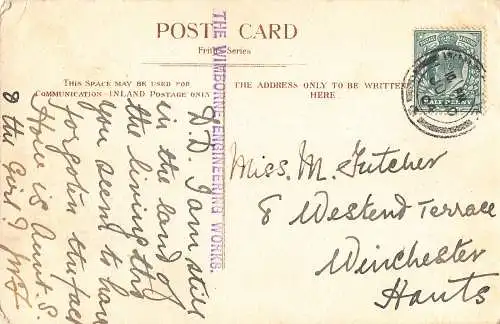 POST CARD
Friths Series
THIS SPACE MAY BE USED FOR
COMMUNICATION INLAND POSTAGE ONLY
THE ADDRESS ONLY TO BE WRITTEN
HERE.
THE WIMBORNE ENGINEERING WORKS.
HALF PENNY
D.D. I am still
in the land of
the living tho
you seem to have
forgotten the fact
How is Aunt S.
& the Girl?
Miss. M. Futcher
8 Westend Terrace
Winchester
Hants